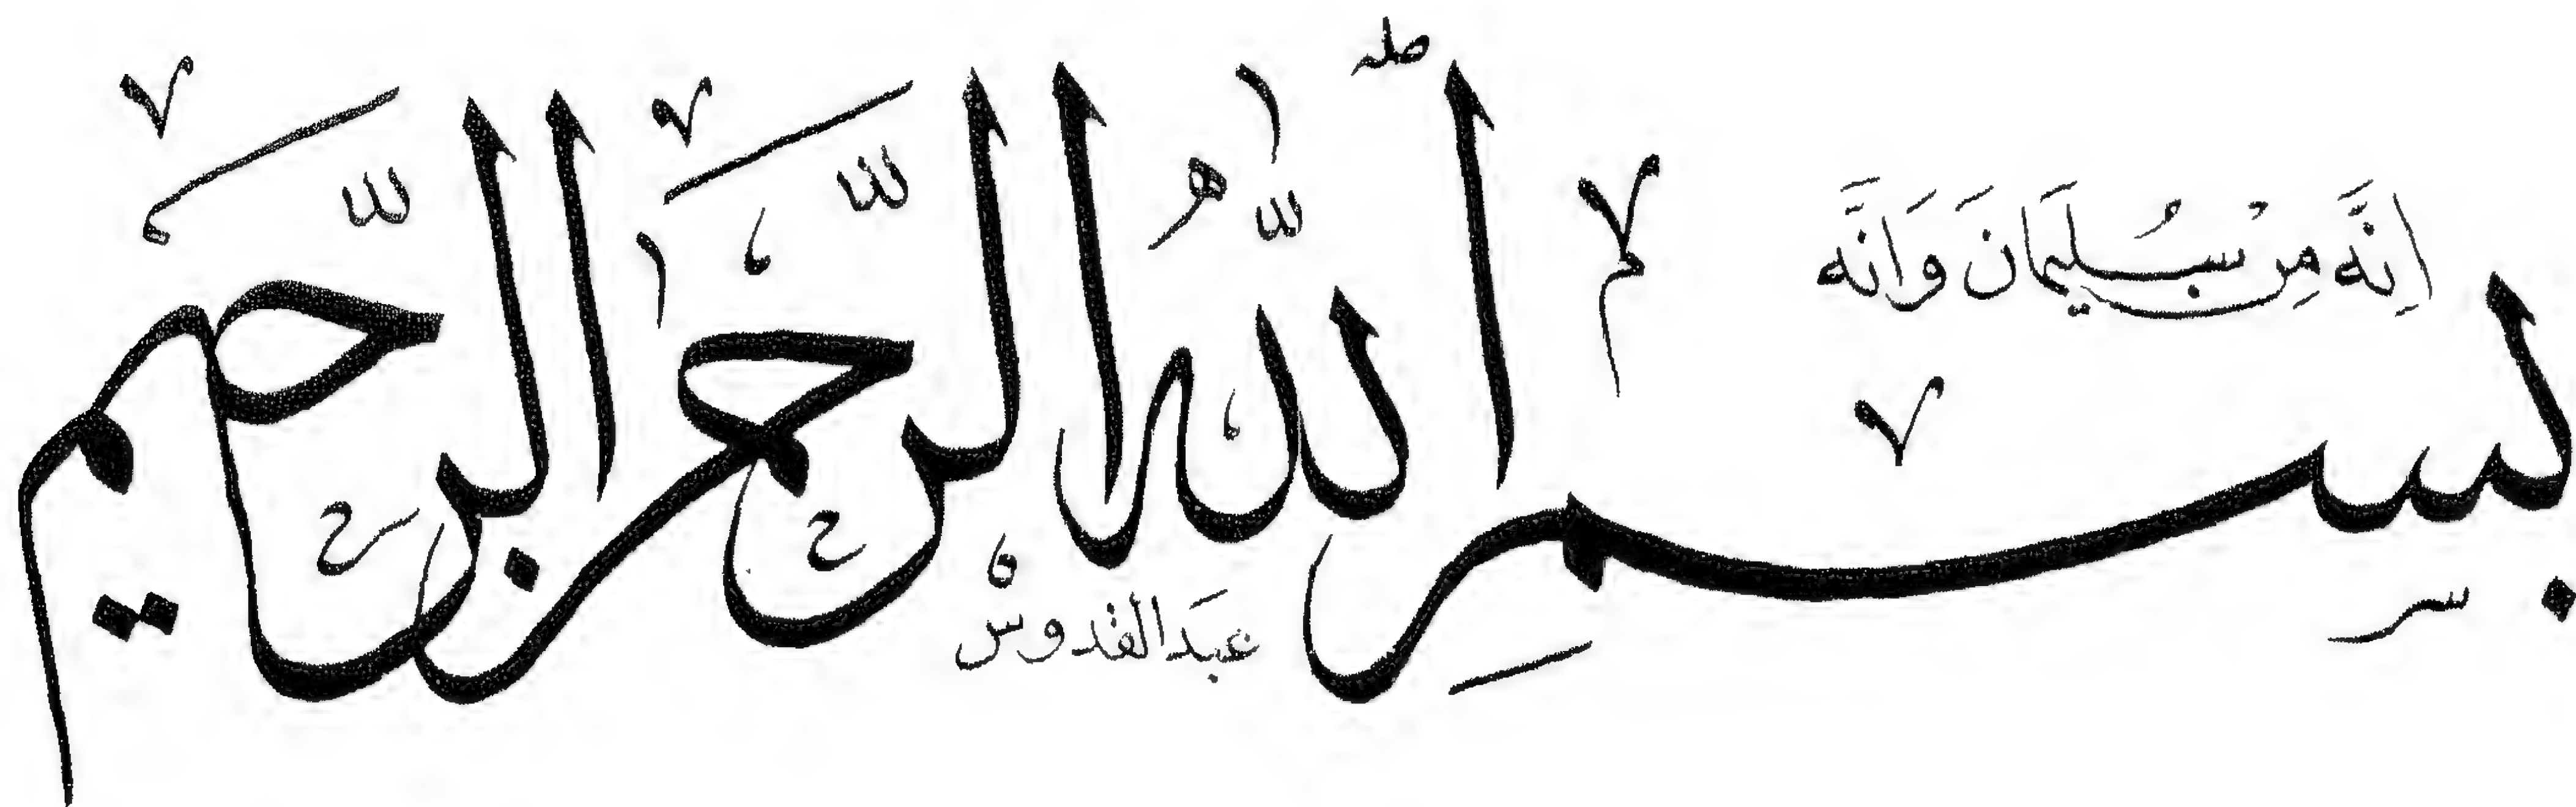 اِنَّهٗ مِنْ سُلَيْمَانَ وَاِنَّهٗ
بِسْمِ اللّٰهُ الرَّحْمٰنِ الرَّحِيْمِ
عَبْدَالقدوس